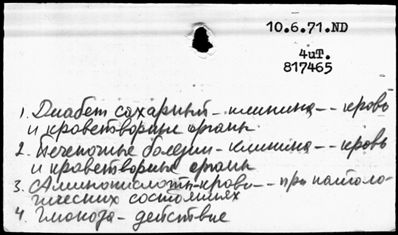 10.6.71.ND
4uT.
817465
1. Диабет сахарный – клиника -- кровь
и кроветворные органы
2. Печеночные болезни – клиника -- кровь
и кроветворные органы
3. Аминокислоты – крови -- при патоло-
гических состояниях
4. Глюкоза – действие